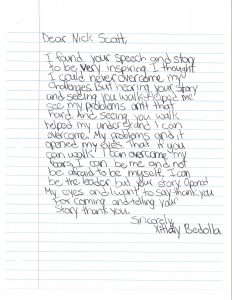 Dear Nick Scott,
I found your speech and story
to be very inspiring I thought
I could never overcome my
challenges but hearing your story
and seeing you walk helped me
see my problems arnt that
hard. And seeing you walk
helped my understand I can
overcome. My problems and it
opened my eyes. That if you
can walk I can overcome my
fears. I can be me and not
be afraid to be myself. I can
be the leader but your story. Opened
My eyes and I want to say thank you
For coming and telling your
Story thank you.
Sincerely,
Bedolla